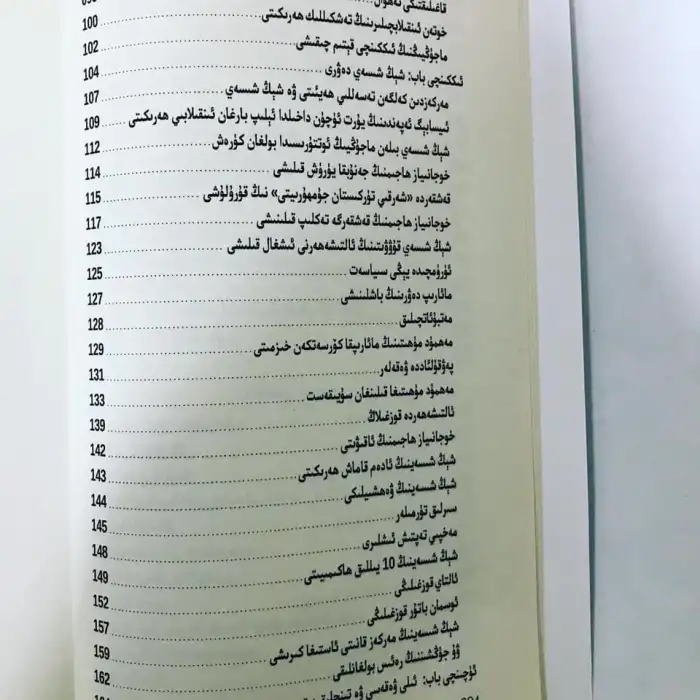 قاغىلىقتىكى
خوتەن ئىنقىلابچىلىرىنىڭ تەشكىللىك ھەرىكىتى 100
ماجۇڭيىڭنىڭ ئىككىنچى قېتىم چىقىشى 102
ئىككىنچى باب: شېڭ شىسەي دەۋرى 104
مەركەزدىن كەلگەن تەسەللىي ھەيئىتى ۋە شېڭ شىسەي 107
ئىيسابېگ ئەپەندىنىڭ يۇرت ئۈچۈن داخىلدا ئېلىپ بارغان ئىنقىلابىي ھەرىكىتى 109
شېڭ شىسەي بىلەن ماجۇڭيىڭ ئوتتۇرىسىدا بولغان كۈرەش 112
خوجانىياز ھاجىمنىڭ جەنۇبقا يۈرۈش قىلىشى 114
قەشقەردە «شەرقىي تۈركىستان جۇمھۇرىيىتى» نىڭ قۇرۇلۇشى 115
خوجانىياز ھاجىمنىڭ قەشقەرگە تەكلىپ قىلىنىشى 117
شېڭ شىسەي قوۋۋىتىنىڭ ئالتىشەھەرنى ئىشغال قىلىشى 123
ئۈرۈمچىدە يېڭى سىياسەت 125
مائارىپ دەۋرىنىڭ باشلىنىشى 127
مەتبۇئاتچىلىق 128
مەھمۇد مۇھىتىنىڭ مائارىپقا كۆرسەتكەن خىزمىتى 129
پەۋقۇلئاددە ۋەقەلەر 131
مەھمۇد مۇھىتىغا قىلىنغان سۇيىقەست 133
ئالتىشەھەردە قوزغىلاڭ 139
خوجانىياز ھاجىمنىڭ ئاقىۋىتى 142
شېڭ شىسەينىڭ ئادەم قاماش ھەرىكىتى 143
شېڭ شىسەينىڭ ۋەھشىيلىكى 144
سىرلىق تۈرمىلەر 145
مەخپىي تەپتىش ئىشلىرى 148
شېڭ شىسەينىڭ 10 يىللىق ھاكىمىيىتى 149
ئالتاي قوزغىلىڭى 152
ئوسمان باتۇر قوزغىلىڭى 157
شېڭ شىسەينىڭ مەركەز قانىتى ئاستىغا كىرىشى 159
ۋۇ جۇڭشىننىڭ رەئىس بولغانلىقى 162
ئۈچىنچى باب: ئىلى ۋەقەسى ۋە تىنچلىق